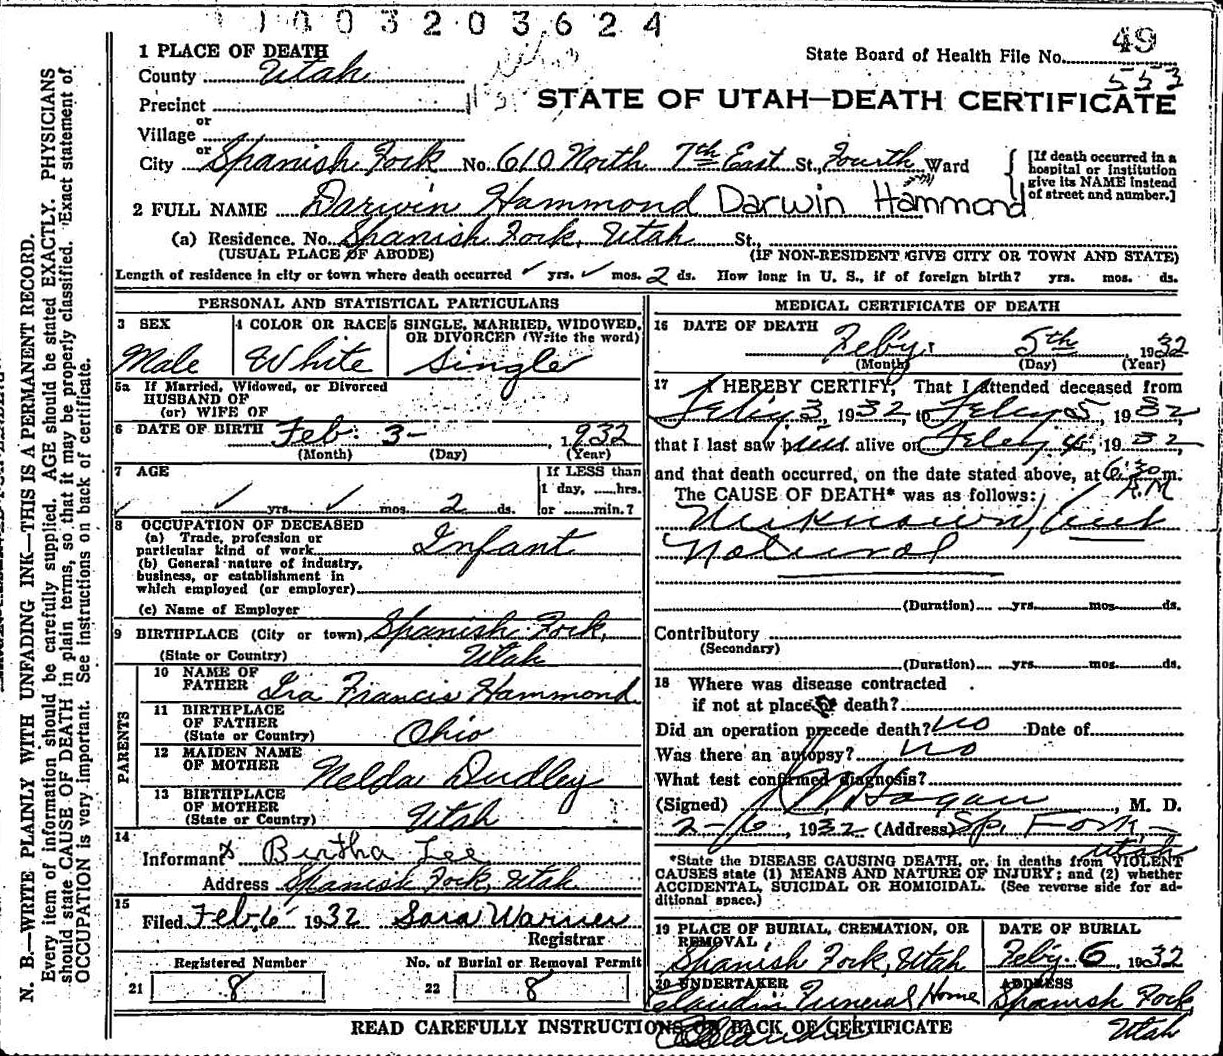 1003203624
49
State Board of Health File No.
553
1 PLACE OF DEATH
County Utah
STATE OF UTAH—DEATH CERTIFICATE
Precinct
or
Village
or
City Spanish Fork No. 610 North 7th East St., Fourth Ward
[If death occurred in a hospital or institution give its NAME instead of street and number.]
2 FULL NAME Darwin Hammond Darwin Hammond
(a) Residence. No. Spanish Fork, Utah St.,
(USUAL PLACE OF ABODE) (IF NON-RESIDENT GIVE CITY OR TOWN AND STATE)
Length of residence in city or town where death occurred ✓ yrs. ✓ mos. 2 ds. How long in U. S., if of foreign birth? yrs. mos. ds.
PERSONAL AND STATISTICAL PARTICULARS
3 SEX Male
4 COLOR OR RACE White
5 SINGLE, MARRIED, WIDOWED, OR DIVORCED (Write the word) Single
5a If Married, Widowed, or Divorced
HUSBAND OF
(or) WIFE OF
6 DATE OF BIRTH Feb. 3- 1932
(Month) (Day) (Year)
7 AGE
✓ yrs. ✓ mos. 2 ds.
If LESS than
1 day, ....hrs.
or ......min.?
8 OCCUPATION OF DECEASED
(a) Trade, profession or
particular kind of work Infant
(b) General nature of industry,
business, or establishment in
which employed (or employer)
(c) Name of Employer
9 BIRTHPLACE (City or town) Spanish Fork,
(State or Country) Utah
PARENTS
10 NAME OF
FATHER Ira Francis Hammond
11 BIRTHPLACE
OF FATHER
(State or Country) Ohio
12 MAIDEN NAME
OF MOTHER Nelda Dudley
13 BIRTHPLACE
OF MOTHER
(State or Country) Utah
14
Informant x Bertha Lee
Address Spanish Fork, Utah
15
Filed Feb 6 1932 Sara Warner
Registrar
Registered Number No. of Burial or Removal Permit
21 8 22 8
MEDICAL CERTIFICATE OF DEATH
16 DATE OF DEATH Feby. 5th 1932
(Month) (Day) (Year)
17 I HEREBY CERTIFY, That I attended deceased from
Feby 3, 1932 to Feby 5, 1932
that I last saw him alive on Feby 4, 1932
and that death occurred, on the date stated above, at 6:30 m.
A.M
The CAUSE OF DEATH* was as follows:
Unknown, but
Natural
(Duration) yrs. mos. ds.
Contributory
(Secondary)
(Duration) yrs. mos. ds.
18 Where was disease contracted
if not at place of death?
Did an operation precede death? no Date of
Was there an autopsy? no
What test confirmed diagnosis?
(Signed) Hagan, M. D.
2-6, 1932 (Address) Sp. Fork,
Utah
*State the DISEASE CAUSING DEATH, or, in deaths from VIOLENT
CAUSES state (1) MEANS AND NATURE OF INJURY; and (2) whether
ACCIDENTAL, SUICIDAL OR HOMICIDAL. (See reverse side for ad-
ditional space.)
19 PLACE OF BURIAL, CREMATION, OR
REMOVAL
Spanish Fork, Utah
DATE OF BURIAL
Feby. 6 1932
20 UNDERTAKER
Claudin Funeral Home
ADDRESS
Spanish Fork
Utah
READ CAREFULLY INSTRUCTIONS ON BACK OF CERTIFICATE
N. B.—WRITE PLAINLY WITH UNFADING INK—THIS IS A PERMANENT RECORD.
Every item of information should be carefully supplied. AGE should be stated EXACTLY. PHYSICIANS
should state CAUSE OF DEATH in plain terms, so that it may be properly classified. Exact statement of
OCCUPATION is very important. See instructions on back of certificate.